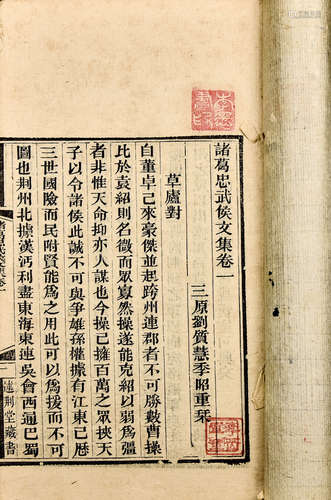 諸葛忠武侯文集卷一
三原劉質慧季昭重栞
草廬對
自董卓已來豪傑並起跨州連郡者不可勝數曹操
比於袁紹則名微而眾寡然操遂能克紹以弱為彊
者非惟天命抑亦人謀也今操已擁百萬之眾挾天
子以令諸侯此誠不可與爭雄孫權據有江東已歷
三世國險而民附賢能為之用此可以為援而不可
圖也荆州北據漢沔利盡東海東連吳會西通巴蜀
述荆堂藏書